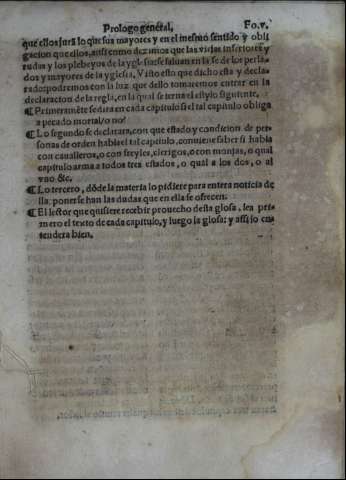 Prologo general, Fo.v.
que ellos jurã lo que sus mayores y en el mesmo sentido y obli
gacion que ellos, assi como dezimos que las viejas inferiores y
rudas y los plebeyos de la yglesia se saluan en la fe de los perla-
dos y mayores de la yglesia. Visto esto que dicho esta y decla-
rado: podremos con la luz que dello tomaremos entrar en la
declaracion de la regla, en la qual se terna el estylo siguiente.
¶ Primeramẽte se dira en cada capitulo si el tal capitulo obliga
a pecado mortal/o no?
¶ Lo segundo se declarara, con que estado y condicion de per-
sonas de orden habla el tal capitulo, conuiene saber si habla
con caualleros, o con freyles, clerigos, o con monjas, o qual
capitulo arma a todos tres estados, o qual a los dos, o al
vno &c.
¶ Lo tercero, dõde la materia lo pidiere para entera noticia de
lla: poner se han las dudas que en ella se ofrecen.
¶ El lector que quisiere recebir prouecho desta glosa, lea pri-
mero el texto de cada capitulo, y luego la glosa: y assi lo en
tendera bien.